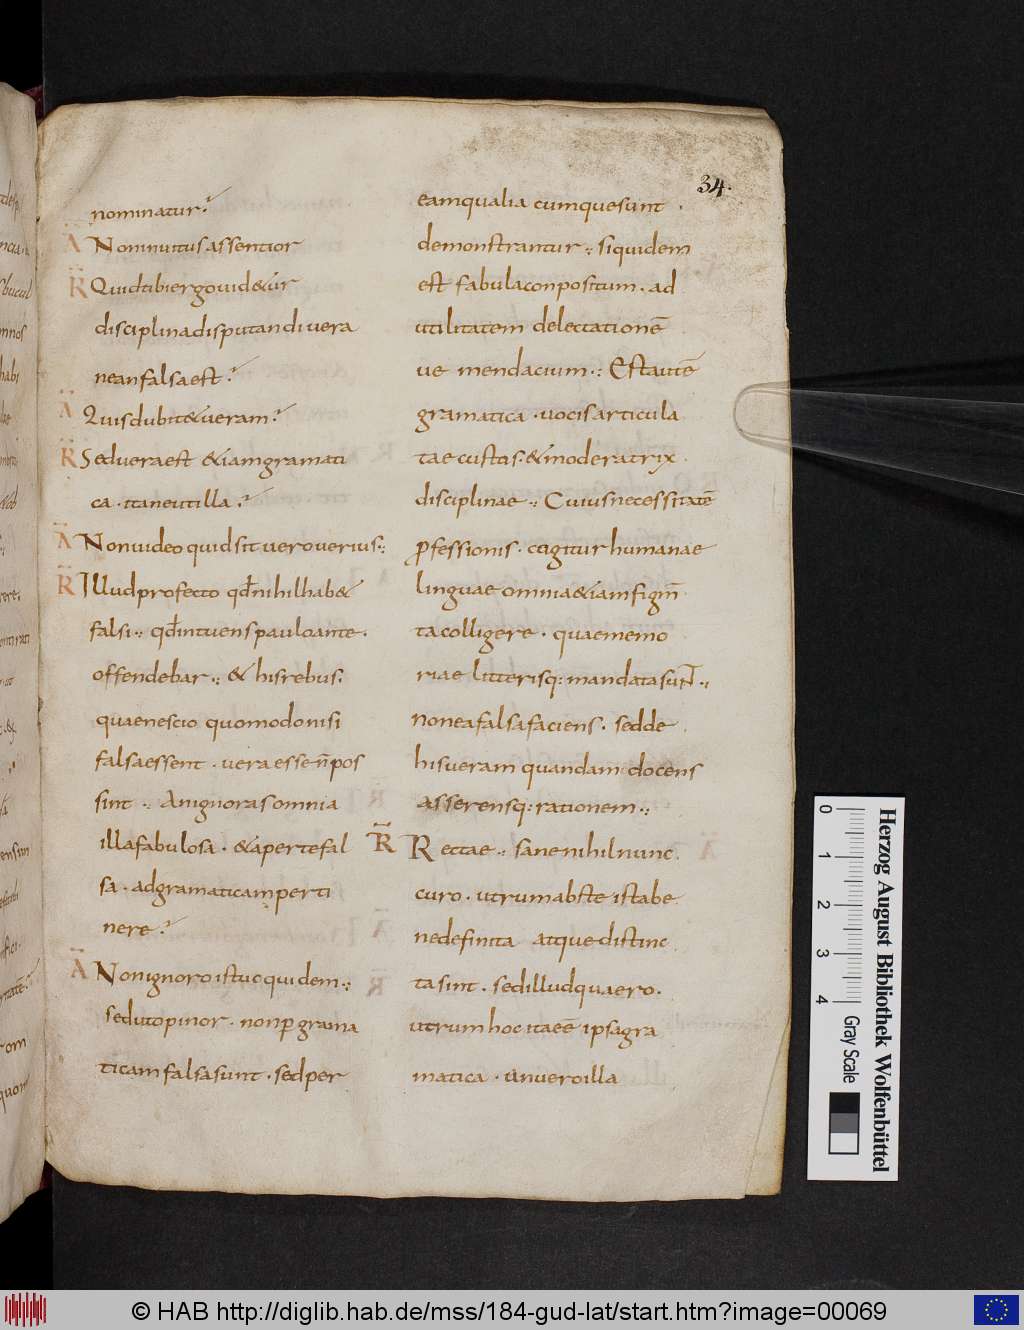 34.
nominatur?
Ā Nominutusassentior
R̄ Quidtibiergouid&ur
disciplinadisputandi vera
neanfalsaest?
Ā Quisdubit&veram?
R̄ Sedveraest &iamgramati
ca · itaneutilla?
Ā Nonvideo quidsit veroverius:
R̄ Illudprofecto qđnihilhab&
falsi ·: qđintuenspauloante ·
offendebar ·: & hisrebus:
quaenescio quomodonisi
falsaessent · vera essen̄pos
sint ·: Anignorasomnia
illafabulosa · &apertefal
sa · adgramaticamperti
nere?
Ā Nonignoroistuc quidem ·:
sedutopinor · nonꝑ grama
ticam falsasunt · sedper
eamqualia cumquesunt
demonstrantur ·: siquidem
est fabulaconpositum · ad
utilitatem delectationē
ue mendacium ·: Estautē
gramatica · vocisarticula
tae custos · &moderatrix
disciplinae ·: Cuiusnecessitatē
ꝓfessionis · cogitur humanae
linguae omnia&iamfigm̄
tacolligere · quaememo
riae litterisq: mandatasun̄t ·:
noneafalsafaciens · sedde
hisveram quandam docens
asserensq: rationem ·:
R̄ Rectae ·: sanenihilnunc
curo · utrumabste istabe
nedefinita atque distinc
tasint · sedilludquaero ·
utrumhoc itaeē ipsagra
matica · anveroilla
Herzog August Bibliothek Wolfenbüttel
0 1 2 3 4 Gray Scale
© HAB http://diglib.hab.de/mss/184-gud-lat/start.htm?image=00069